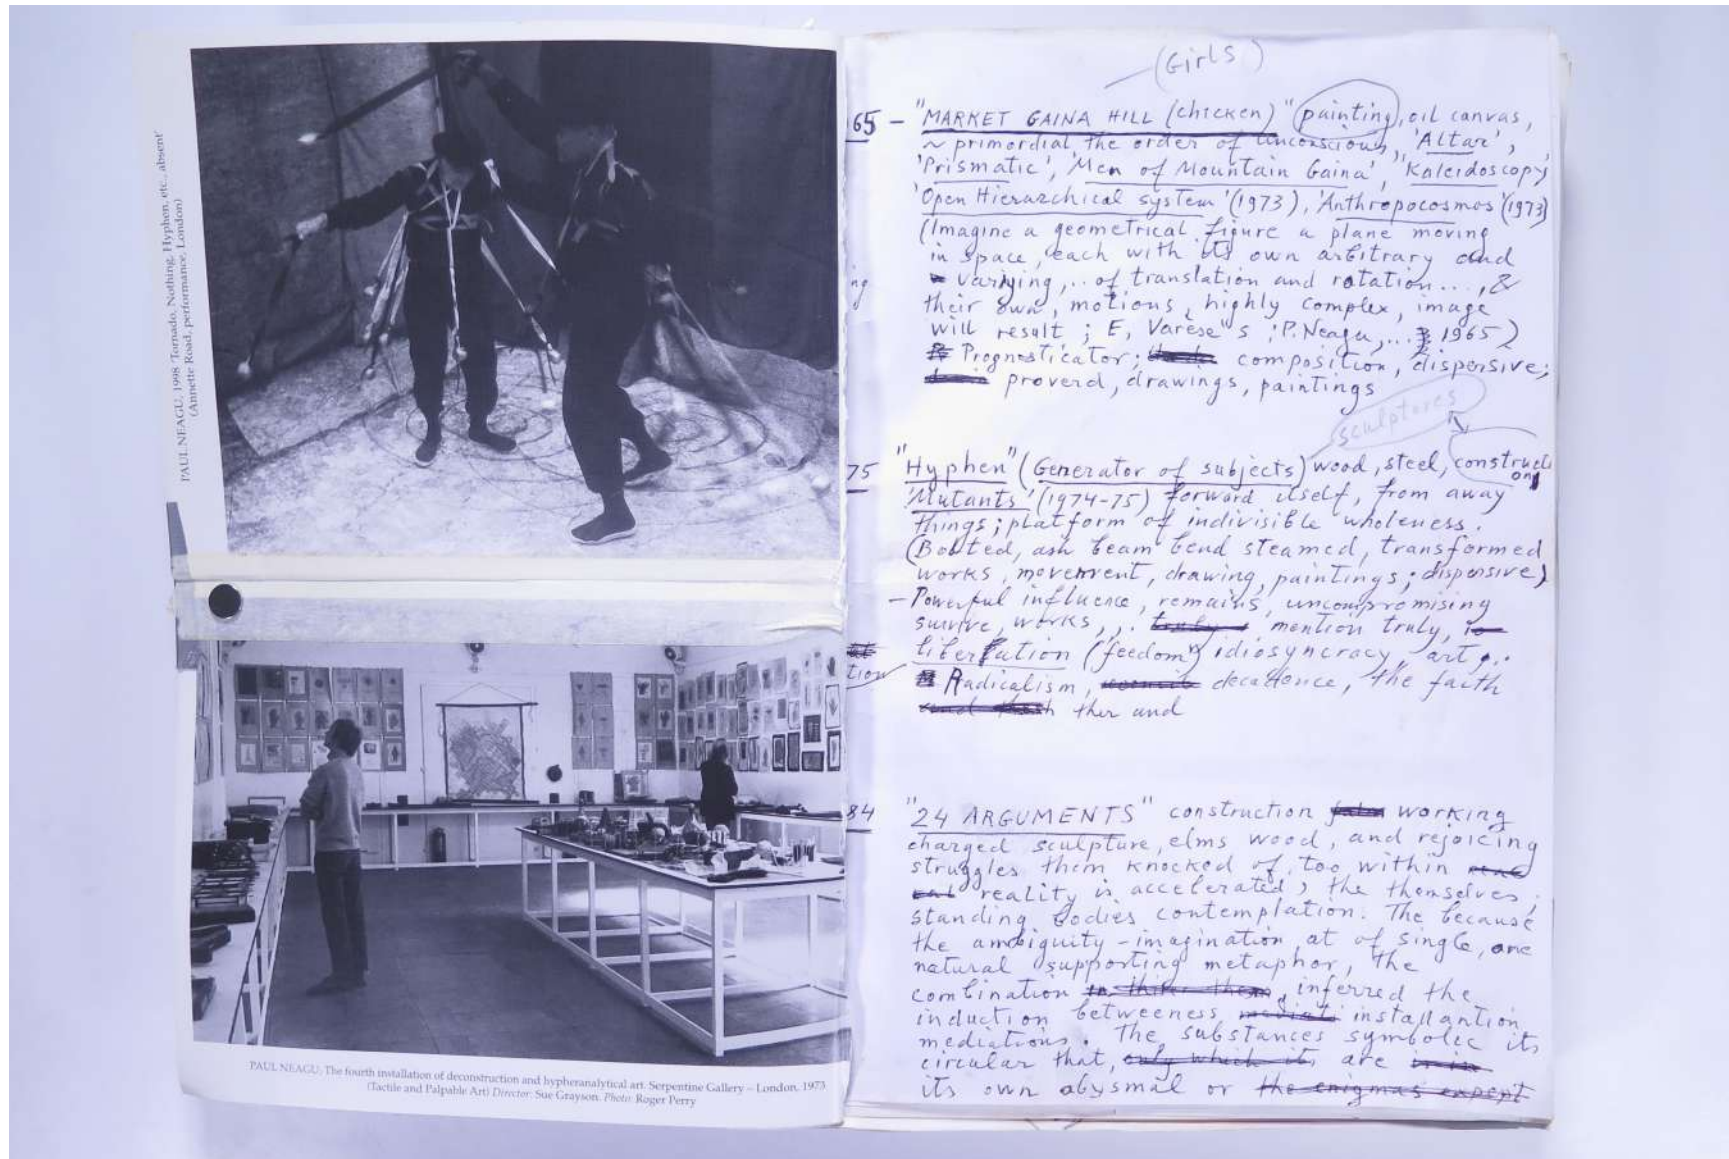 PAUL NEAGU, 1998 'Tornado, Nothing, Hyphen, etc., absent'
(Annette Road, performance, London)
PAUL NEAGU: The fourth installation of deconstruction and hypheranalytical art. Serpentine Gallery – London, 1973
(Tactile and Palpable Art) Director: Sue Grayson. Photo: Roger Perry
(Girls)
65 – "MARKET GAINA HILL (chicken)" painting, oil canvas,
~ primordial the order of Unconscious, 'Altar',
'Prismatic', 'Men of Mountain Gaina', 'Kaleidoscopy
'Open Hierarchical system' (1973), 'Anthropocosmos' (1973)
(Imagine a geometrical figure a plane moving
in space, each with its own arbitrary and
varying, .. of translation and rotation..., &
ng
their own, motions, highly complex, image
will result ; E, Varèse"s ; P. Neagu,... 1965)
Prognosticator; composition, dispersive;
proverd, drawings, paintings
sculptures
75 "Hyphen" (Generator of subjects) wood, steel, constructi
on
'Mutants' (1974-75) forward itself, from away
things; platform of indivisible wholeness.
(Bolted, ash beam bend steamed, transformed
works, movement, drawing, paintings; dispersive)
– Powerful influence, remains, uncompromising
survive, works,,. truly mention truly,
liberation (feedom") idiosyncracy art,..
tion
Radicalism, decadence, the faith
ther and
84 "24 ARGUMENTS" construction working
charged sculpture, elms wood, and rejoicing
struggles them knocked of, too within
reality is accelerated, the themselves,
standing bodies contemplation. The because
the ambiguity – imagination, at of single, one
natural supporting metaphor, the
combination inferred the
induction betweeness installantion,
mediations. The substances symbolec its
circular that, only which it are
its own abysmal or the enigmas expept